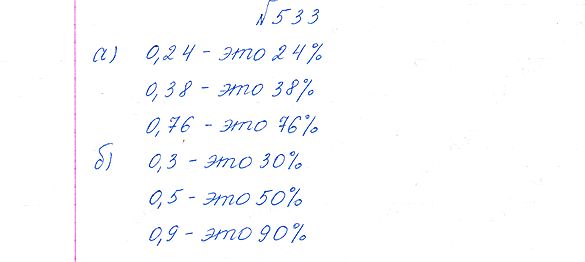 №533
а) 0,24 - это 24%
0,38 - это 38%
0,76 - это 76%
б) 0,3 - это 30%
0,5 - это 50%
0,9 - это 90%